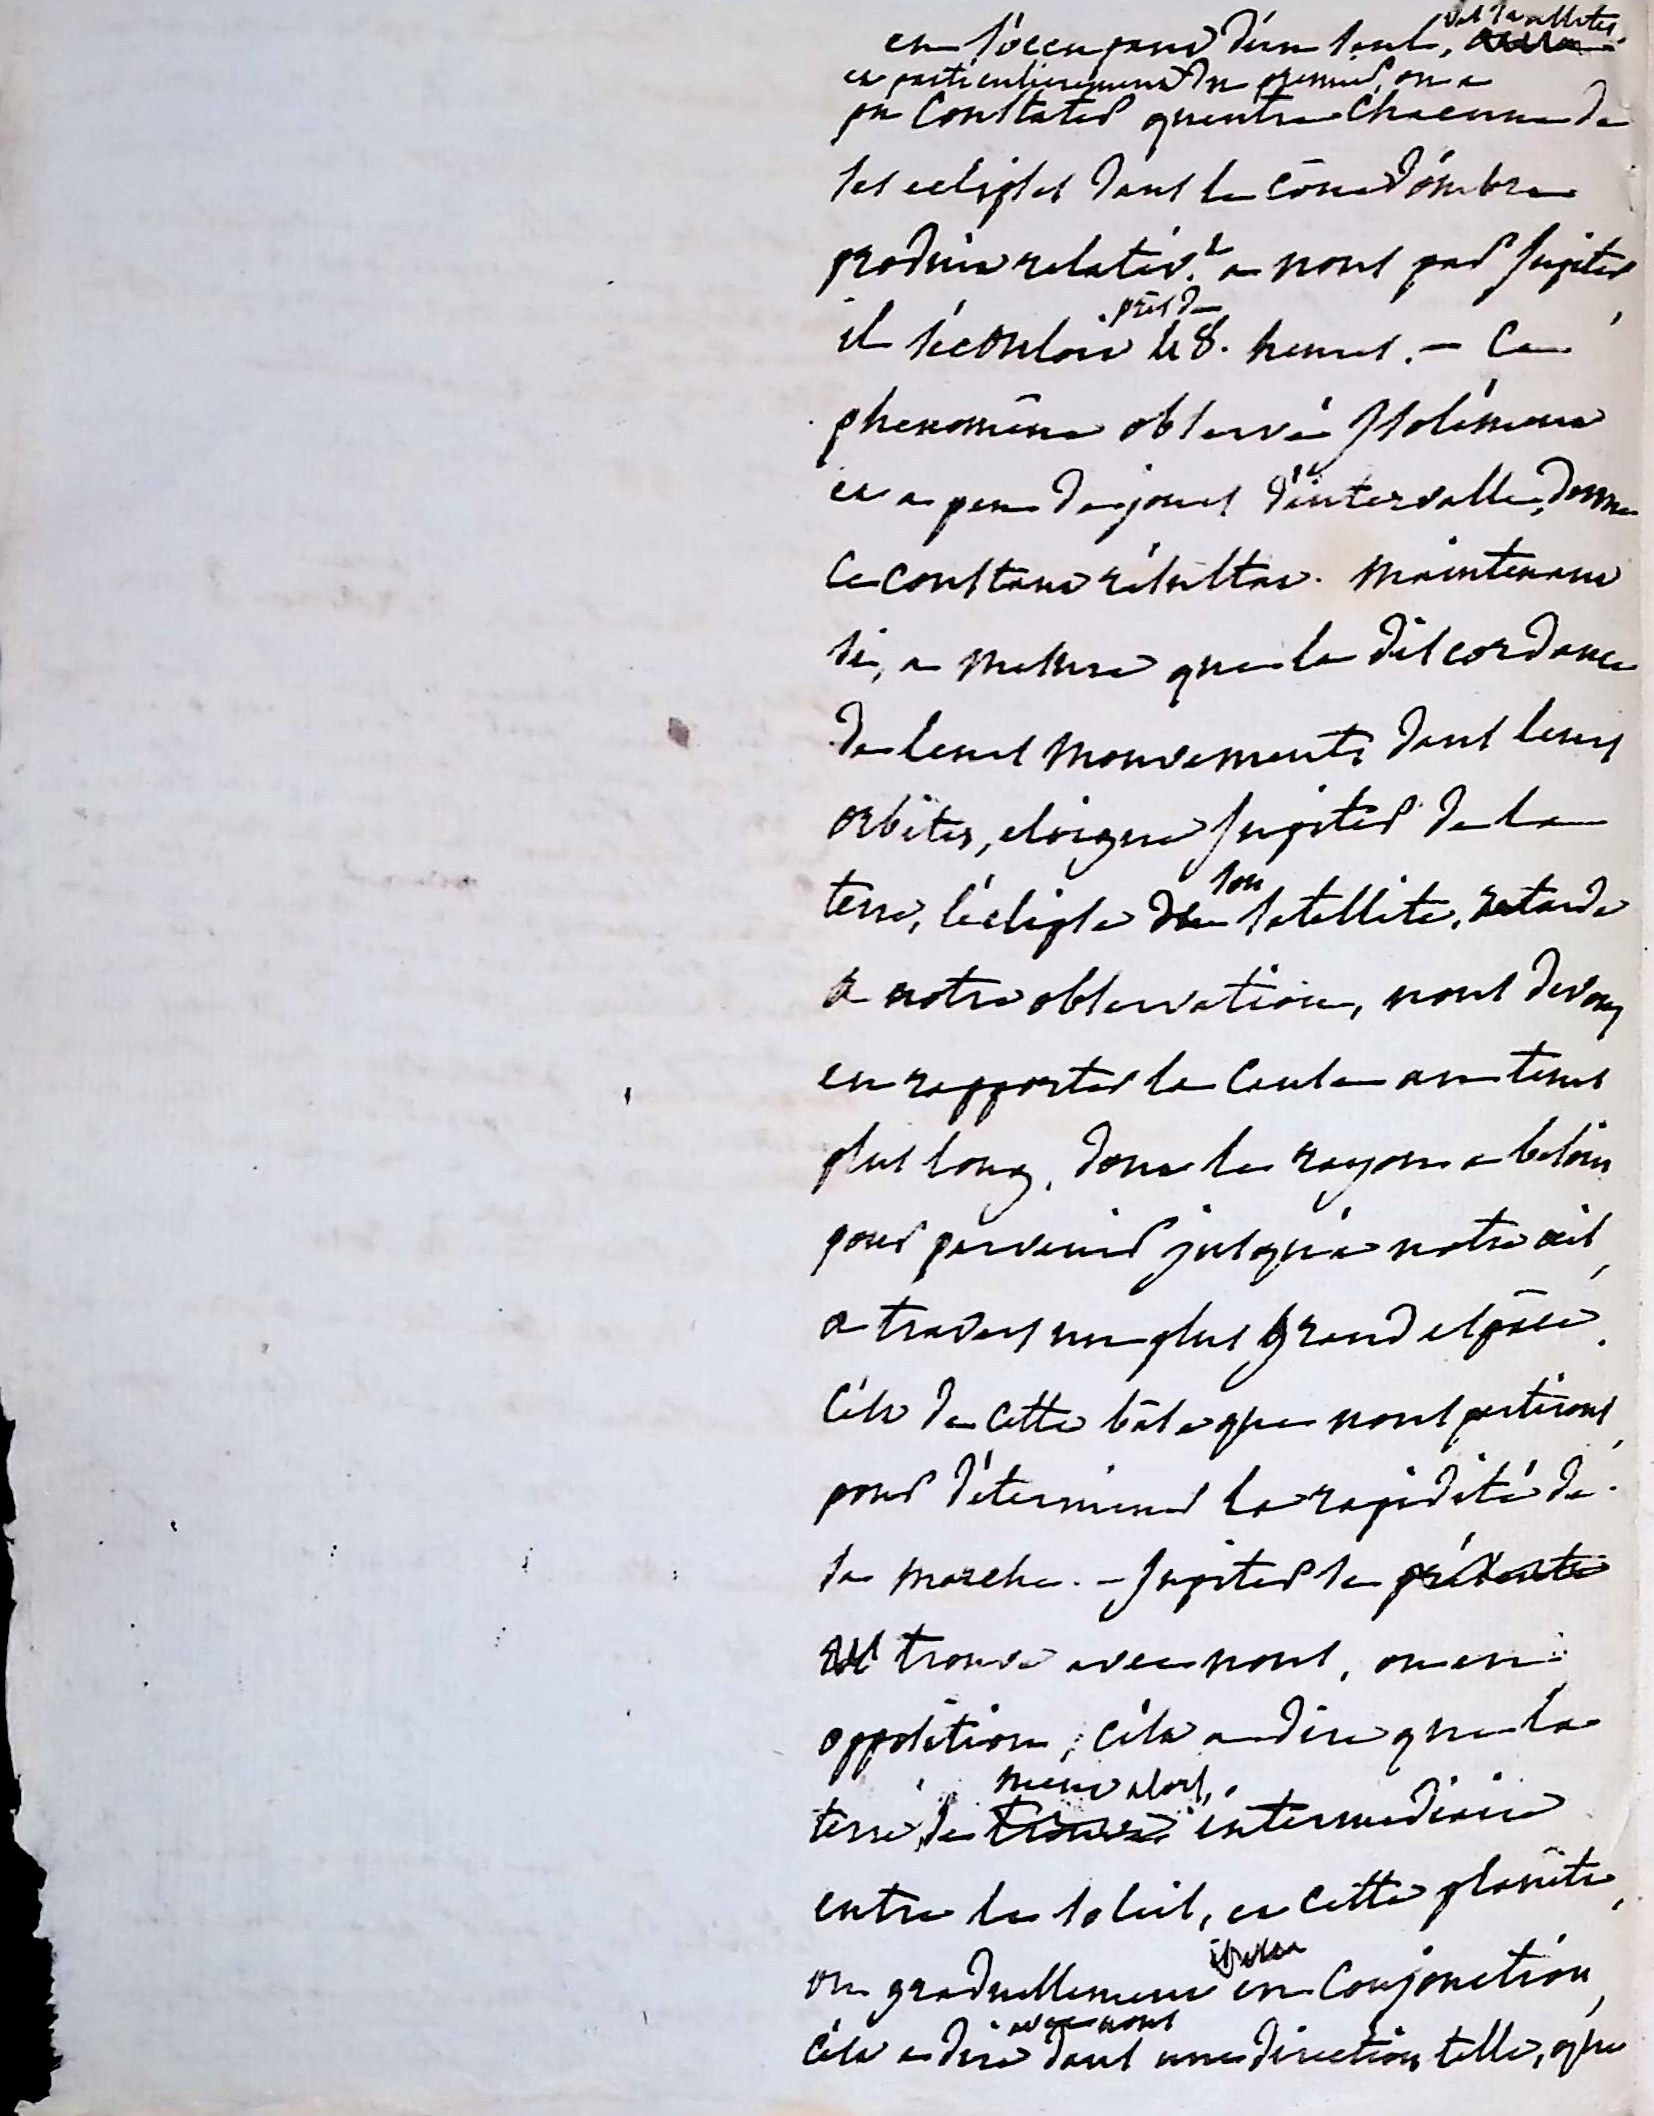 en s'occupant d'un seul, des satellites,
et particulierement du premier, on a
pu Constater qu'entre Chacune de
ses eclipses dans le cône d'ombre
produit relativ.t a nous par Jupiter,
il s'écouloit près de 48. heures. — Ce
phenomêne observé Isolément
et a peu de jours d'intervalle, donne
ce constant résultat. Maintenant
si, a mesure que la discordance
de leurs mouvements dans leurs
orbites, eloigne Jupiter de la
terre, l'éclipse de son satellite, retarde
a notre observation, nous devons
en rapporter la Cause au tems
plus long, dont le rayon a besoin
pour parvenir jusqu'à notre œil,
a travers un plus grand espâce.
C'est de cette bâse que nous partirons,
pour déterminer la rapidité de
sa marche. — Jupiter se présente
trouve avec nous, ou en
opposition, c'est a dire que la
terre, se trouve meut alors, intermediaire
entre le soleil, et cette planète,
ou graduellement en Conjonction,
c'est a dire avec nous dans une direction telle, que